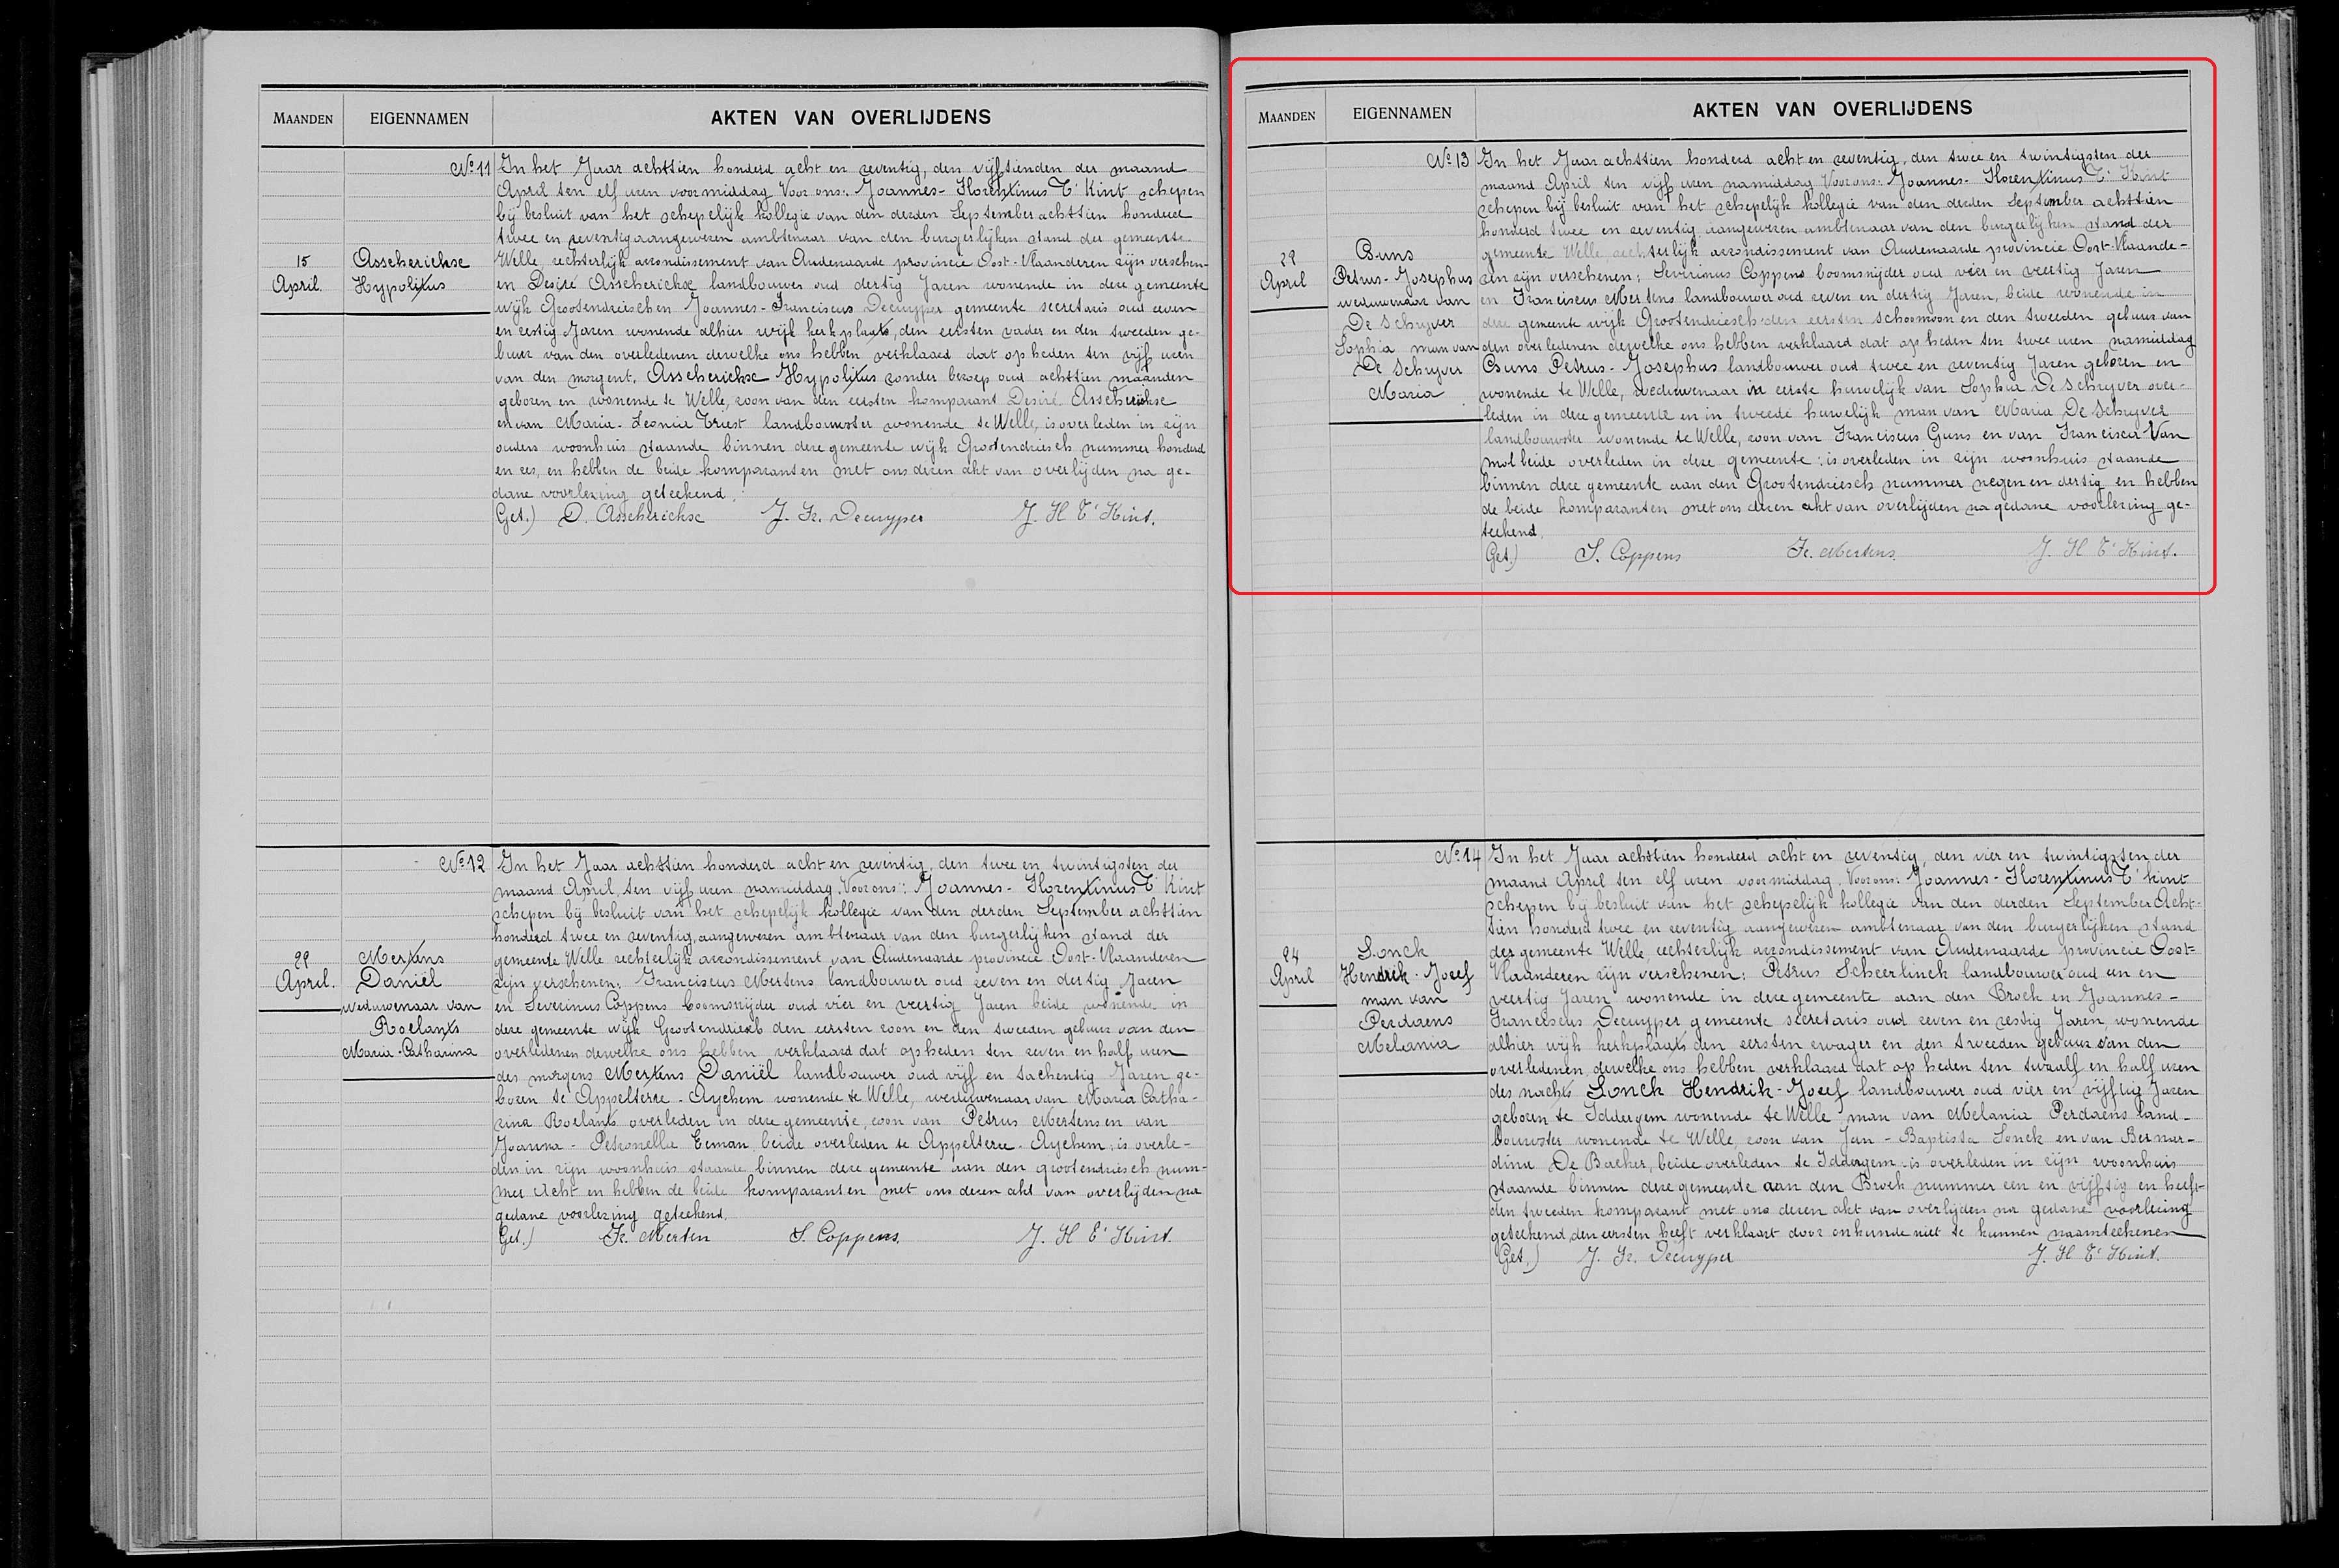 MAANDEN EIGENNAMEN AKTEN VAN OVERLIJDENS
No 11
15
April.
Asscherickx
Hypolitus
In het Jaar achttien honderd acht en zeventig, den vijftienden der maand
April ten elf uren voormiddag Voor ons: Joannes-Florentinus T'Kint schepen
bij besluit van het schepelijk kollegie van den derden September achttien honderd
twee en zeventig aangewezen ambtenaar van den burgerlijken stand der gemeente
Welle, rechterlijk arrondissement van Audenaarde provincie Oost-Vlaanderen zijn verschen-
en Desiré Asscherickx landbouwer oud dertig Jaren wonende in deze gemeente
wijk Grootendriesch en Joannes-Franciscus Decuyper gemeente secretaris oud zeven
en zestig Jaren wonende alhier wijk kerkplaats, den eersten vader en den tweeden ge-
buur van den overledenen dewelke ons hebben verklaard dat op heden ten vijf uren
van den morgent, Asscherickx Hypolitus zonder beroep oud achttien maanden
geboren en wonende te Welle, zoon van den eersten komparant Desiré Asscherickx
en van Maria-Leonia Triest landbouwster wonende te Welle, is overleden in zijn
ouders woonhuis staande binnen deze gemeente wijk Grootendriesch nummer honderd
en zes, en hebben de beide komparanten met ons dezen akt van overlijden na ge-
dane voorlezing geteekend.
Get.) D. Asscherickx J. Fr. Decuyper J. H T'Kint.
No 12
22
April.
Mertens
Daniël
weduwenaar van
Roelants
Maria-Catharina
In het Jaar achttien honderd acht en zeventig, den twee en twintigsten der
maand April, ten vijf uren namiddag. Voor ons: Joannes-Florentinus T'Kint
schepen bij besluit van het schepelijk kollegie van den derden September achttien
honderd twee en zeventig, aangewezen ambtenaar van den burgerlijken stand der
gemeente Welle rechterlijk arrondissement van Audenaarde provincie Oost-Vlaanderen
zijn verschenen: Franciscus Mertens landbouwer oud zeven en dertig Jaren
en Severinus Coppens boomsnijder oud vier en veertig Jaren beide wonende in
deze gemeente wijk Grootendriesch den eersten zoon en den tweeden gebuur van den
overledenen dewelke ons hebben verklaard dat op heden ten zeven en half uren
des morgens Mertens Daniël landbouwer oud vijf en tachentig Jaren ge-
boren te Appelterre-Aychem wonende te Welle, weduwenaar van Maria Catha-
rina Roelants overleden in deze gemeente, zoon van Petrus Mertens en van
Joanna-Petronella Eeman, beide overleden te Appelterre-Aychem, is overle-
den in zijn woonhuis staande binnen deze gemeente aan den grootendriesch num-
mer acht en hebben de beide komparanten met ons dezen akt van overlijden na
gedane voorlezing geteekend.
Get.) Fr. Merten S. Coppens. J. H T'Kint.
MAANDEN EIGENNAMEN AKTEN VAN OVERLIJDENS
No 13
22
April
Guns
Petrus-Josephus
weduwenaar van
De Schryver
Sophia man van
De Schryver
Maria
In het Jaar achttien honderd acht en zeventig, den twee en twintigsten der
maand April ten vijf uren namiddag Voor ons: Joannes-Florentinus T'Kint
schepen bij besluit van het schepelijk kollegie van den derden September achttien
honderd twee en zeventig aangewezen ambtenaar van den burgerlijken stand der
gemeente Welle rechterlijk arrondissement van Audenaarde provincie Oost-Vlaande-
ren zijn verschenen; Severinus Coppens boomsnijder oud vier en veertig Jaren
en Franciscus Mertens landbouwer oud zeven en dertig Jaren, beide wonende in
deze gemeente wijk Grootendriesch den eersten schoonzoon en den tweeden gebuur van
den overledenen dewelke ons hebben verklaard dat op heden ten twee uren namiddag
Guns Petrus-Josephus landbouwer oud twee en zeventig Jaren geboren en
wonende te Welle, weduwenaar in eerste huwelijk van Sophia De Schryver over-
leden in deze gemeente en in tweede huwelijk man van Maria De Schryver
landbouwster wonende te Welle, zoon van Franciscus Guns en van Francisca Van
mol beide overleden in deze gemeente: is overleden in zijn woonhuis staande
binnen deze gemeente aan den Grootendriesch nummer negen en dertig en hebben
de beide komparanten met ons dezen akt van overlijden na gedane voorlezing ge-
teekend.
Get.) S. Coppens Fr. Mertens. J. H T'Kint.
No 14
24
April
Lonck
Hendrik-Jozef
man van
Perdaens
Melania
In het Jaar achttien honderd acht en zeventig, den vier en twintigsten der
maand April ten elf uren voormiddag. Voor ons: Joannes-Florentinus T'kint
schepen bij besluit van het schepelijk kollegie van den derden September Acht-
tien honderd twee en zeventig aangewezen ambtenaar van den burgerlijken stand
der gemeente Welle, rechterlijk arrondissement van Audenaarde provincie Oost-
Vlaanderen zijn verschenen: Petrus Scheerlinck landbouwer oud en en
veertig Jaren wonende in deze gemeente aan den Broek en Joannes-
Franciscus Decuyper gemeente secretaris oud zeven en zestig Jaren, wonende
alhier wijk kerkplaats den eersten zwager en den tweeden gebuur van den
overledenen, dewelke ons hebben verklaard dat op heden ten twaalf en half uren
des nachts Lonck Hendrik-Jozef landbouwer oud vier en vijftig Jaren
geboren te Iddergem wonende te Welle man van Melania Perdaens land-
bouwster wonende te Welle, zoon van Jan-Baptista Lonck en van Bernar-
dina De Backer, beide overleden te Iddergem: is overleden in zijn woonhuis
staande binnen deze gemeente aan den Broek nummer een en vijftig en heeft
den tweeden komparant met ons dezen akt van overlijden na gedane voorlezing
geteekend, den eersten heeft verklaart door onkunde niet te kunnen naamteekenen
Get.) J. Fr. Decuyper J. H T'Kint.